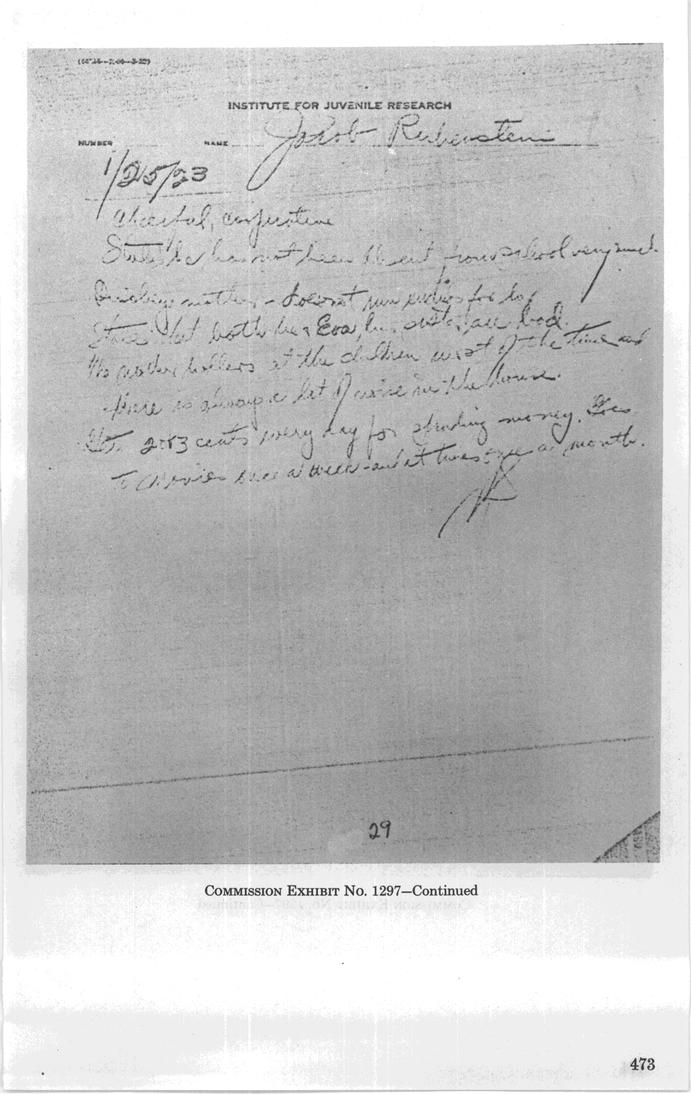 INSTITUTE FOR JUVENILE RESEARCH
NUMBER NAME Jacob Rubenstein
1/25/23
Cheerful, cooperative
States he has not been absent from school very much.
mother - does not run
both he & Eva, his sister, are bad.
The mother hollers at the children most of the time and
there is always a lot of noise in the house.
2 or 3 cents every day for spending money. Goes
to movies once a week - and at times a month.
29
COMMISSION EXHIBIT No. 1297—Continued
473